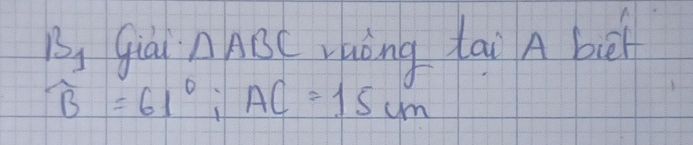 B₁ Giải ∆ABC vuông tại A biết
B̂ = 61°; AC = 15 cm